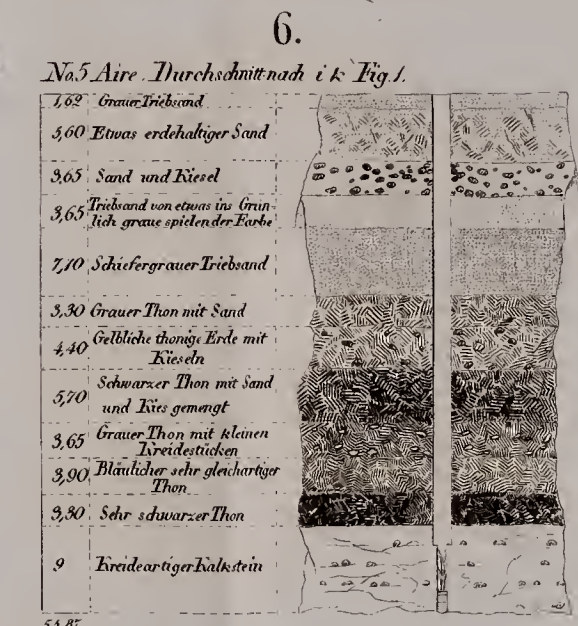 6.
No. 5 Aire. Durchschnitt nach i k Fig. 1.
1,62 Grauer Triebsand
5,60 Etwas erdehaltiger Sand
3,65 Sand und Kiesel
3,65 Triebsand von etwas ins Grün-
lich graue spielender Farbe
7,10 Schiefergrauer Triebsand
3,30 Grauer Thon mit Sand
4,40 Gelbliche thonige Erde mit
Kieseln
5,70 Schwarzer Thon mit Sand
und Kies gemengt
3,65 Grauer Thon mit kleinen
Kreidestücken
3,90 Bläulicher sehr gleichartiger
Thon
3,30 Sehr schwarzer Thon
9 Kreideartiger Kalkstein
54,87